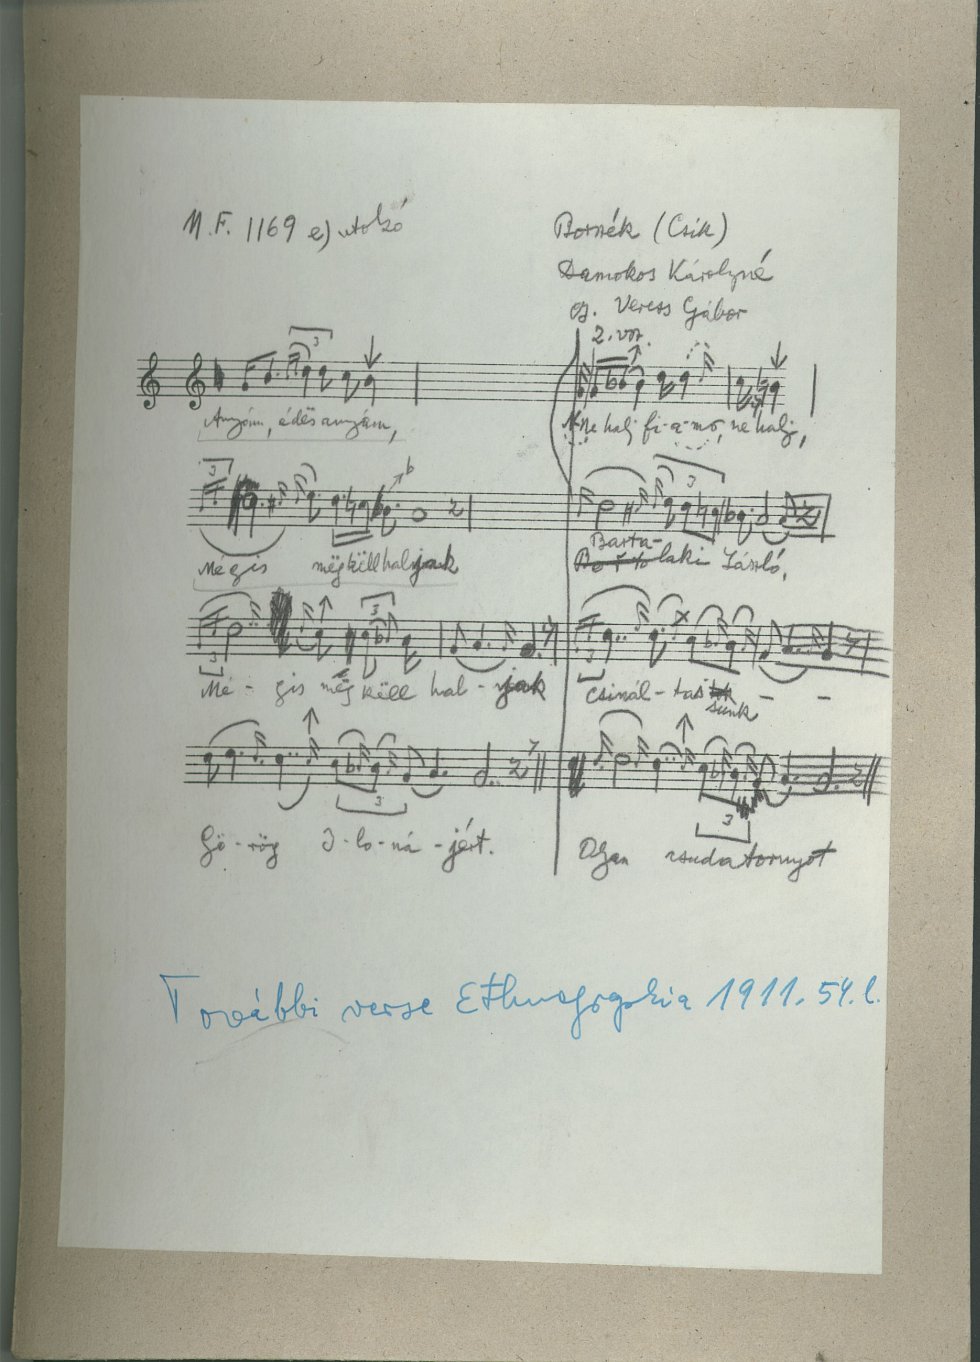 M.F. 1169 e) utolsó
Borszék (Csik)
Damokos Károlyné
sz. Veress Gábor
2. vsz.
Anyám, édës anyám,
Ne halj fi-a-mo, ne halj,
Mégis mëg këll haljak
Barta-
laki László,
Mé - gis mëg këll hal - jak
csinál - tas
sunk
Gö - rög I - lo - ná - jért.
Olyan csuda tornyot
További verse Ethnographia 1911. 54. l.